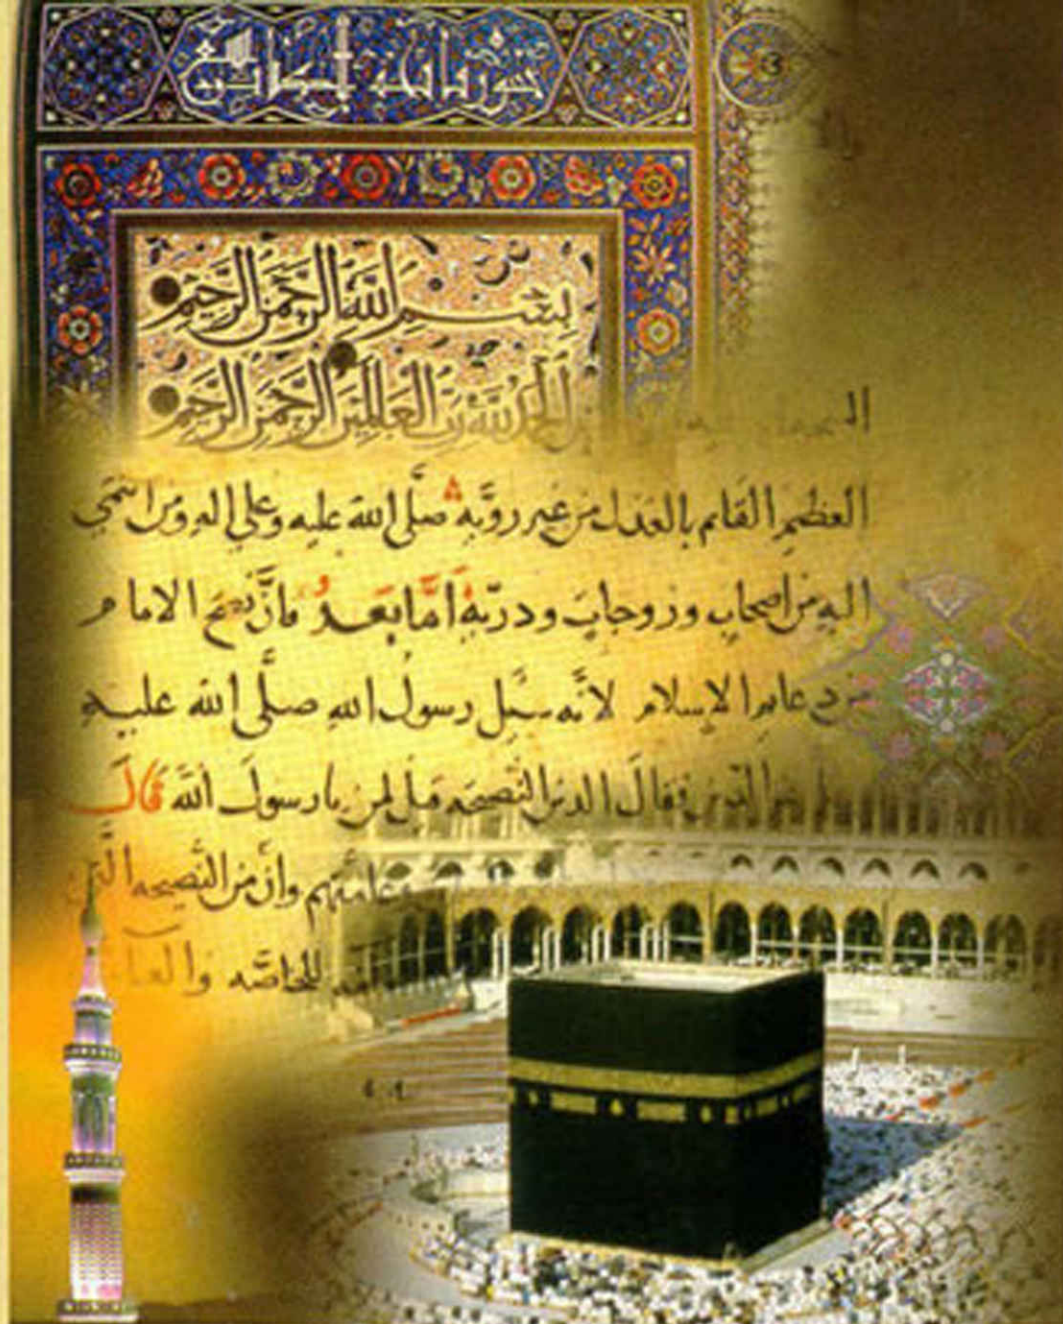 سورة فاتحة الكتاب سبع
بسم الله الرحمن الرحيم
الحمد لله رب العالمين الرحمن الرحيم
العظيم القايم بالعدل من غير رويه صلى الله عليه وعلى اله ومن
اليه من اصحاب وزوجات وذريه أما بعد فان نصح الامام
الاسلام لانه رسول الله صلى الله عليه
الدين فقال الدين النصيحه قيل لمن يا رسول الله قال
وعامتهم وان من النصيحه
للخاصه والعا